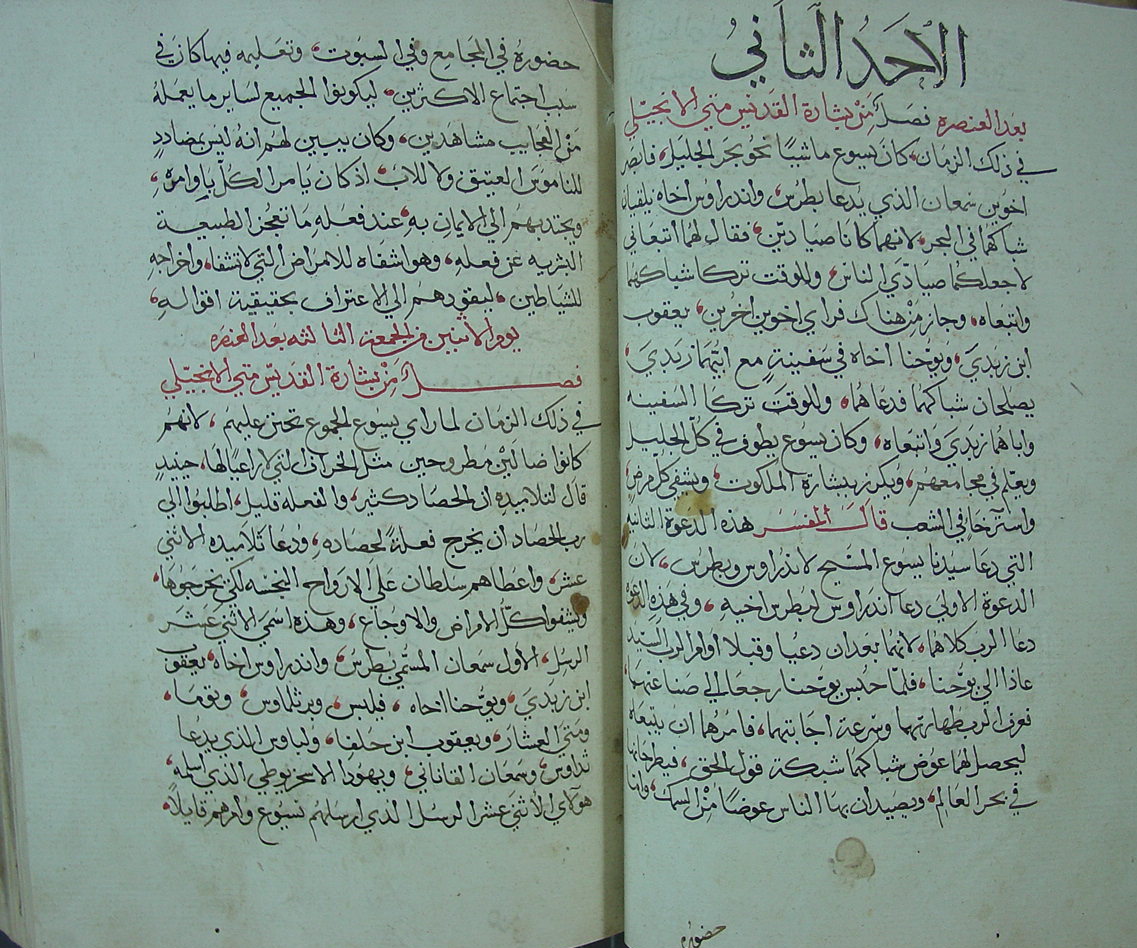 الأحد الثاني
بعد العنصره فصل من بشارة القديس متي الانجيلي
في ذلك الزمان، كان يسوع ماشيًا نحو بحر الجليل، فابصر
اخوين سمعان الذي يدعا بطرس، واندراوس اخاه يلقيان
شباكهما في البحر، لانهما كانا صيادين، فقال لهما اتبعاني
لاجعلكما صيادَي الناس، وللوقت تركا شباكهما
واتبعاه، وجاز من هناك فراي اخوين اخرين، يعقوب
ابن زبدي، ويوحنا اخاه في سفينةٍ مع ابيهما زبدي،
يصلحان شباكهما فدعاهما، وللوقت تركا السفينه
واباهما زبدي واتبعاه، وكان يسوع يطوف في كل الجليل
ويعلم في مجامعهم، ويكرز ببشارة الملكوت، ويشفي كل مرضٍ
واسترخا في الشعب قال المفسر هذه الدعوة الثانيه
التي دعا سيدنا يسوع المسيح لاندراوس وبطرس، لان
الدعوة الاولي دعا اندراوس لبطرس اخيه، وفي هذه الدعوه
دعا الرب كلاهما، لانهما بعد ان دعيا وقبلا اوامر الرب السيد
عاذا الي يوحنا، فلمّا حُبس يوحنا رجعا الي صناعتهما،
فعرف الرب طهارتهما وسرعة اجابتهما، فامرهما ان يتبعاه
ليحصل لهما عوض شباكهما شبكة قول الحق، فيطرحانها
في بحر العالم، ويصيدان بها الناس عوضًا من السمك، وانما
حضوره
حضوره في المجامع وفي السبوت، وتعليمه فيها كان في
سبب اجتماع الاكثرين، ليكونوا الجميع لساير ما يعمله
من العجايب مشاهدين، وكان يبين لهم انه ليس بضاددٍ
للناموس العتيق ولا للاب، اذ كان يامر الكل باوامره،
ويجتذبهم الي الايمان به، عند فعله ما تعجز الطبيعة
البشريه عن فعله، وهو اشفاه للامراض التي لا تشفا، واخراجه
للشياطين، ليقودهم الي الاعتراف بحقيقية اقواله،
يوم الاثنين من الجمعة الثالثه بعد العنصره
فصل من بشارة القديس متي الانجيلي
في ذلك الزمان لما راي يسوع الجموع تحنن عليهم، لانهم
كانوا ضالين مطروحين مثل الخراف التي لا راعيا لها، حينيدٍ
قال لتلاميده ان الحصاد كثير، والفعله قليل، اطلبوا الي
رب الحصاد ان يخرج فعلةً لحصاده، ودعا تلاميده الاثني
عشر، واعطاهم سلطان علي الارواح النجسه لكي يخرجوها
ويشفوا كل الامراض والاوجاع، وهذه اسمي الاثني عشر
الرسل، الاول سمعان المسمي بطرس، واندراوس اخاه، يعقوب
ابن زبدي، ويوحنا اخاه، فيلبس، وبرثلماوس، وتوما،
ومتي العشار، ويعقوب ابن حلفا، ولباوس الذي يدعا
تداوس، وسمعان القاناني، ويهودا الاسخريوطي الذي اسلمه،
هولاي الاثني عشر الرسل الذي ارسلهم يسوع وامرهم قايلاً،